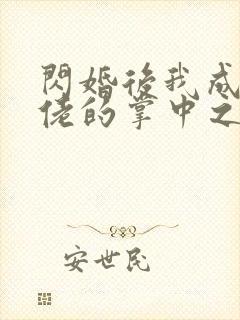 閃婚後我成
佬的掌中之
安世民